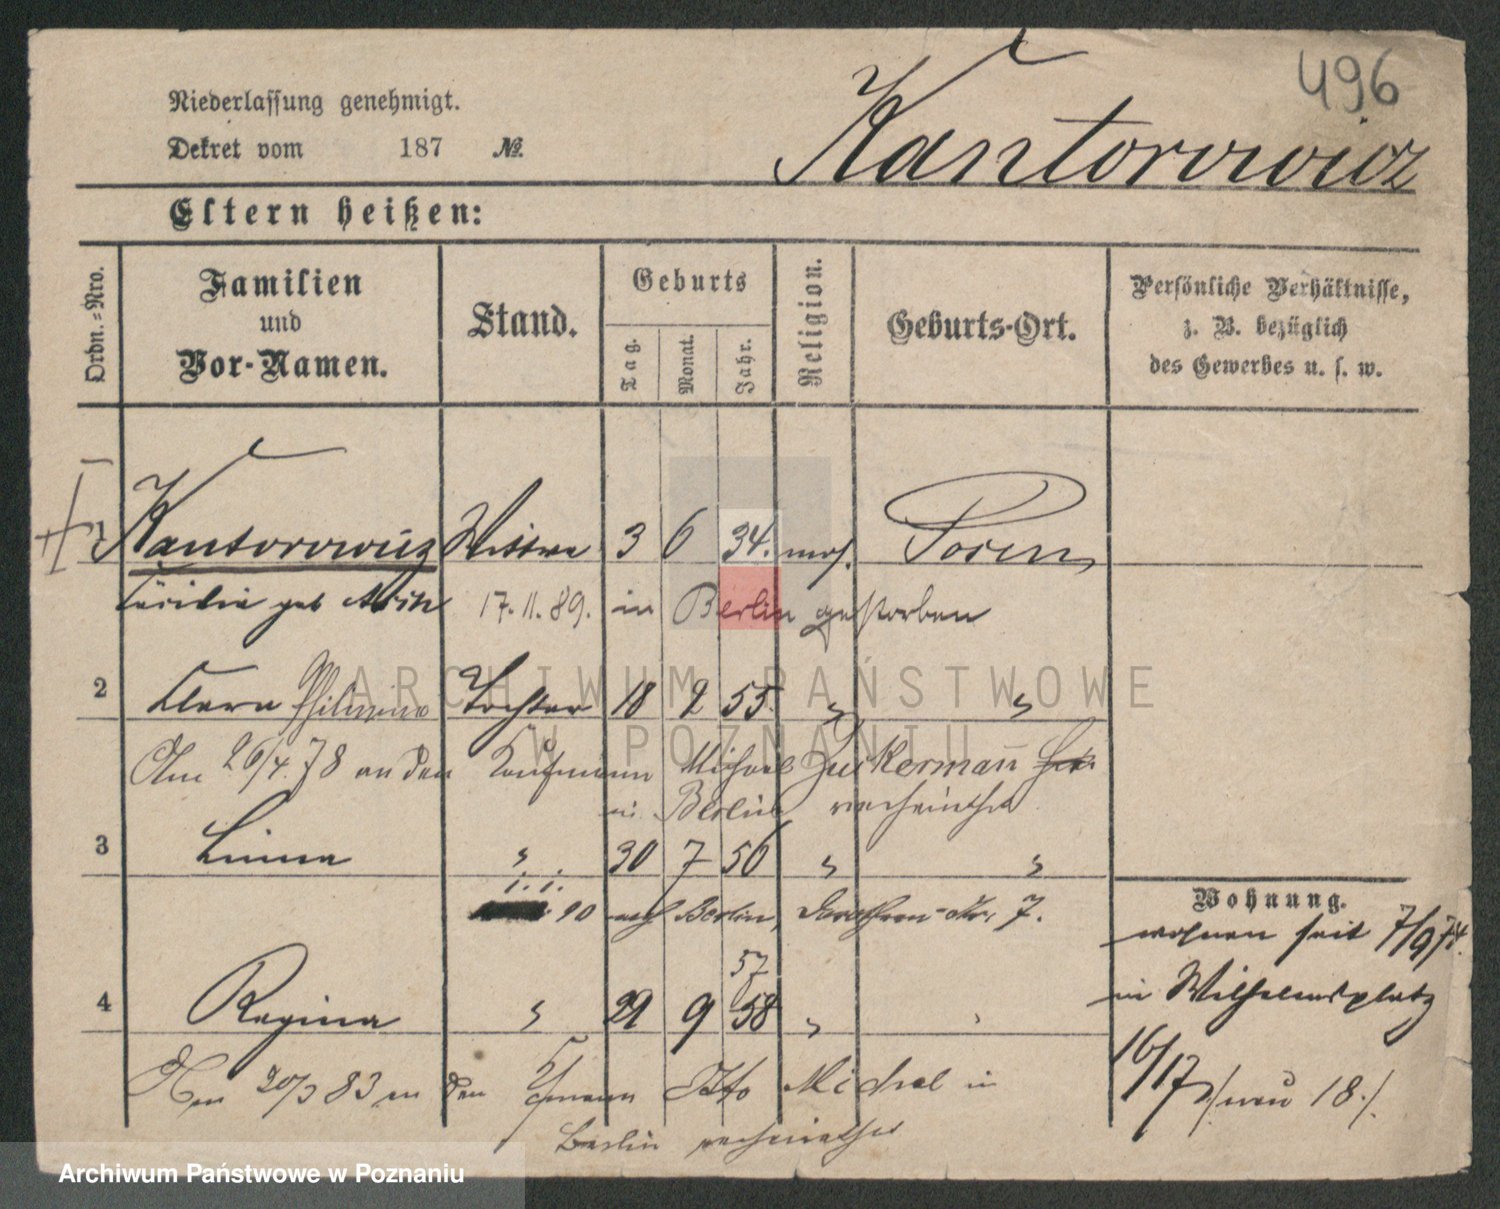 496
Kantorowicz
Niederlassung genehmigt.
Dekret vom 187 No.
Eltern heißen:
Ordn.=Nro.
Familien
und
Vor-Namen.
Stand.
Geburts
Tag.
Monat.
Jahr.
Religion.
Geburts-Ort.
Persönliche Verhältnisse,
z. B. bezüglich
des Gewerbes u. s. w.
1 Kantorowicz Wittwe 3 6 34. mos. Posen
Cäcilie geb 17.11.89. in Berlin gestorben
2 Clara Philippine Tochter 18 2 55. " "
Am 26/4.78 an den Kaufmann Michael Zuckermann
in Berlin verheirathet
3 Linna " 30 7 56 " "
i. i.
90 nach Berlin, Dorotheen-Str. 7.
57
4 Regina " 29 9 58 "
Am 20/3 83 an den Kfmann Otto Michael in
Berlin verheirathet
Wohnung.
wohnen seit 7/9 74.
in Wilhelmsplatz
16/17 ./. neu 18 ./.
ARCHIWUM PAŃSTWOWE
W POZNANIU
Archiwum Państwowe w Poznaniu